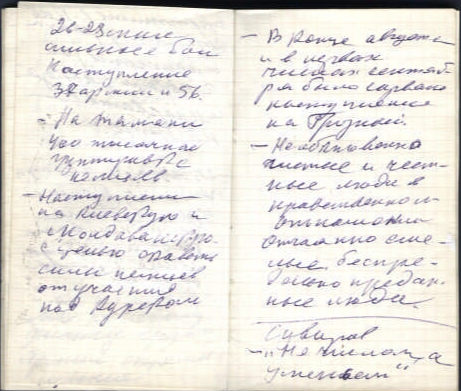 26-28 июня
сильные бои
Наступление
37 армии и 56.
- На Тамани
400 тысячная
группировка
немцев
- Наступление
на Киевскую и
Молдаванскую
с целью
силы немцев
от участия
под
- В конце августа
и в первых
числах сентяб-
ря было сорвано
наступление
на Грозный.
- Необыкновенно
чистые и чест-
ные люди в
нравственном
отношении
отчаянно сме-
лые, беспре-
дельно предан-
ные люди.
Суворов
- "Не числом, а
уменьем"